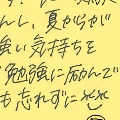 んし、夏からが
強い気持ちを
勉強に励んで
も忘れずに